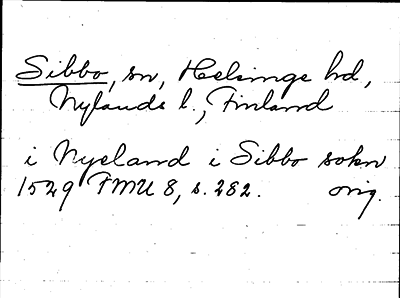 Sibbo, sn, Helsinge hd,
Nylands l., Finland
i Nyeland i Sibbo sokn
1529 FMU 8, s. 282. orig.